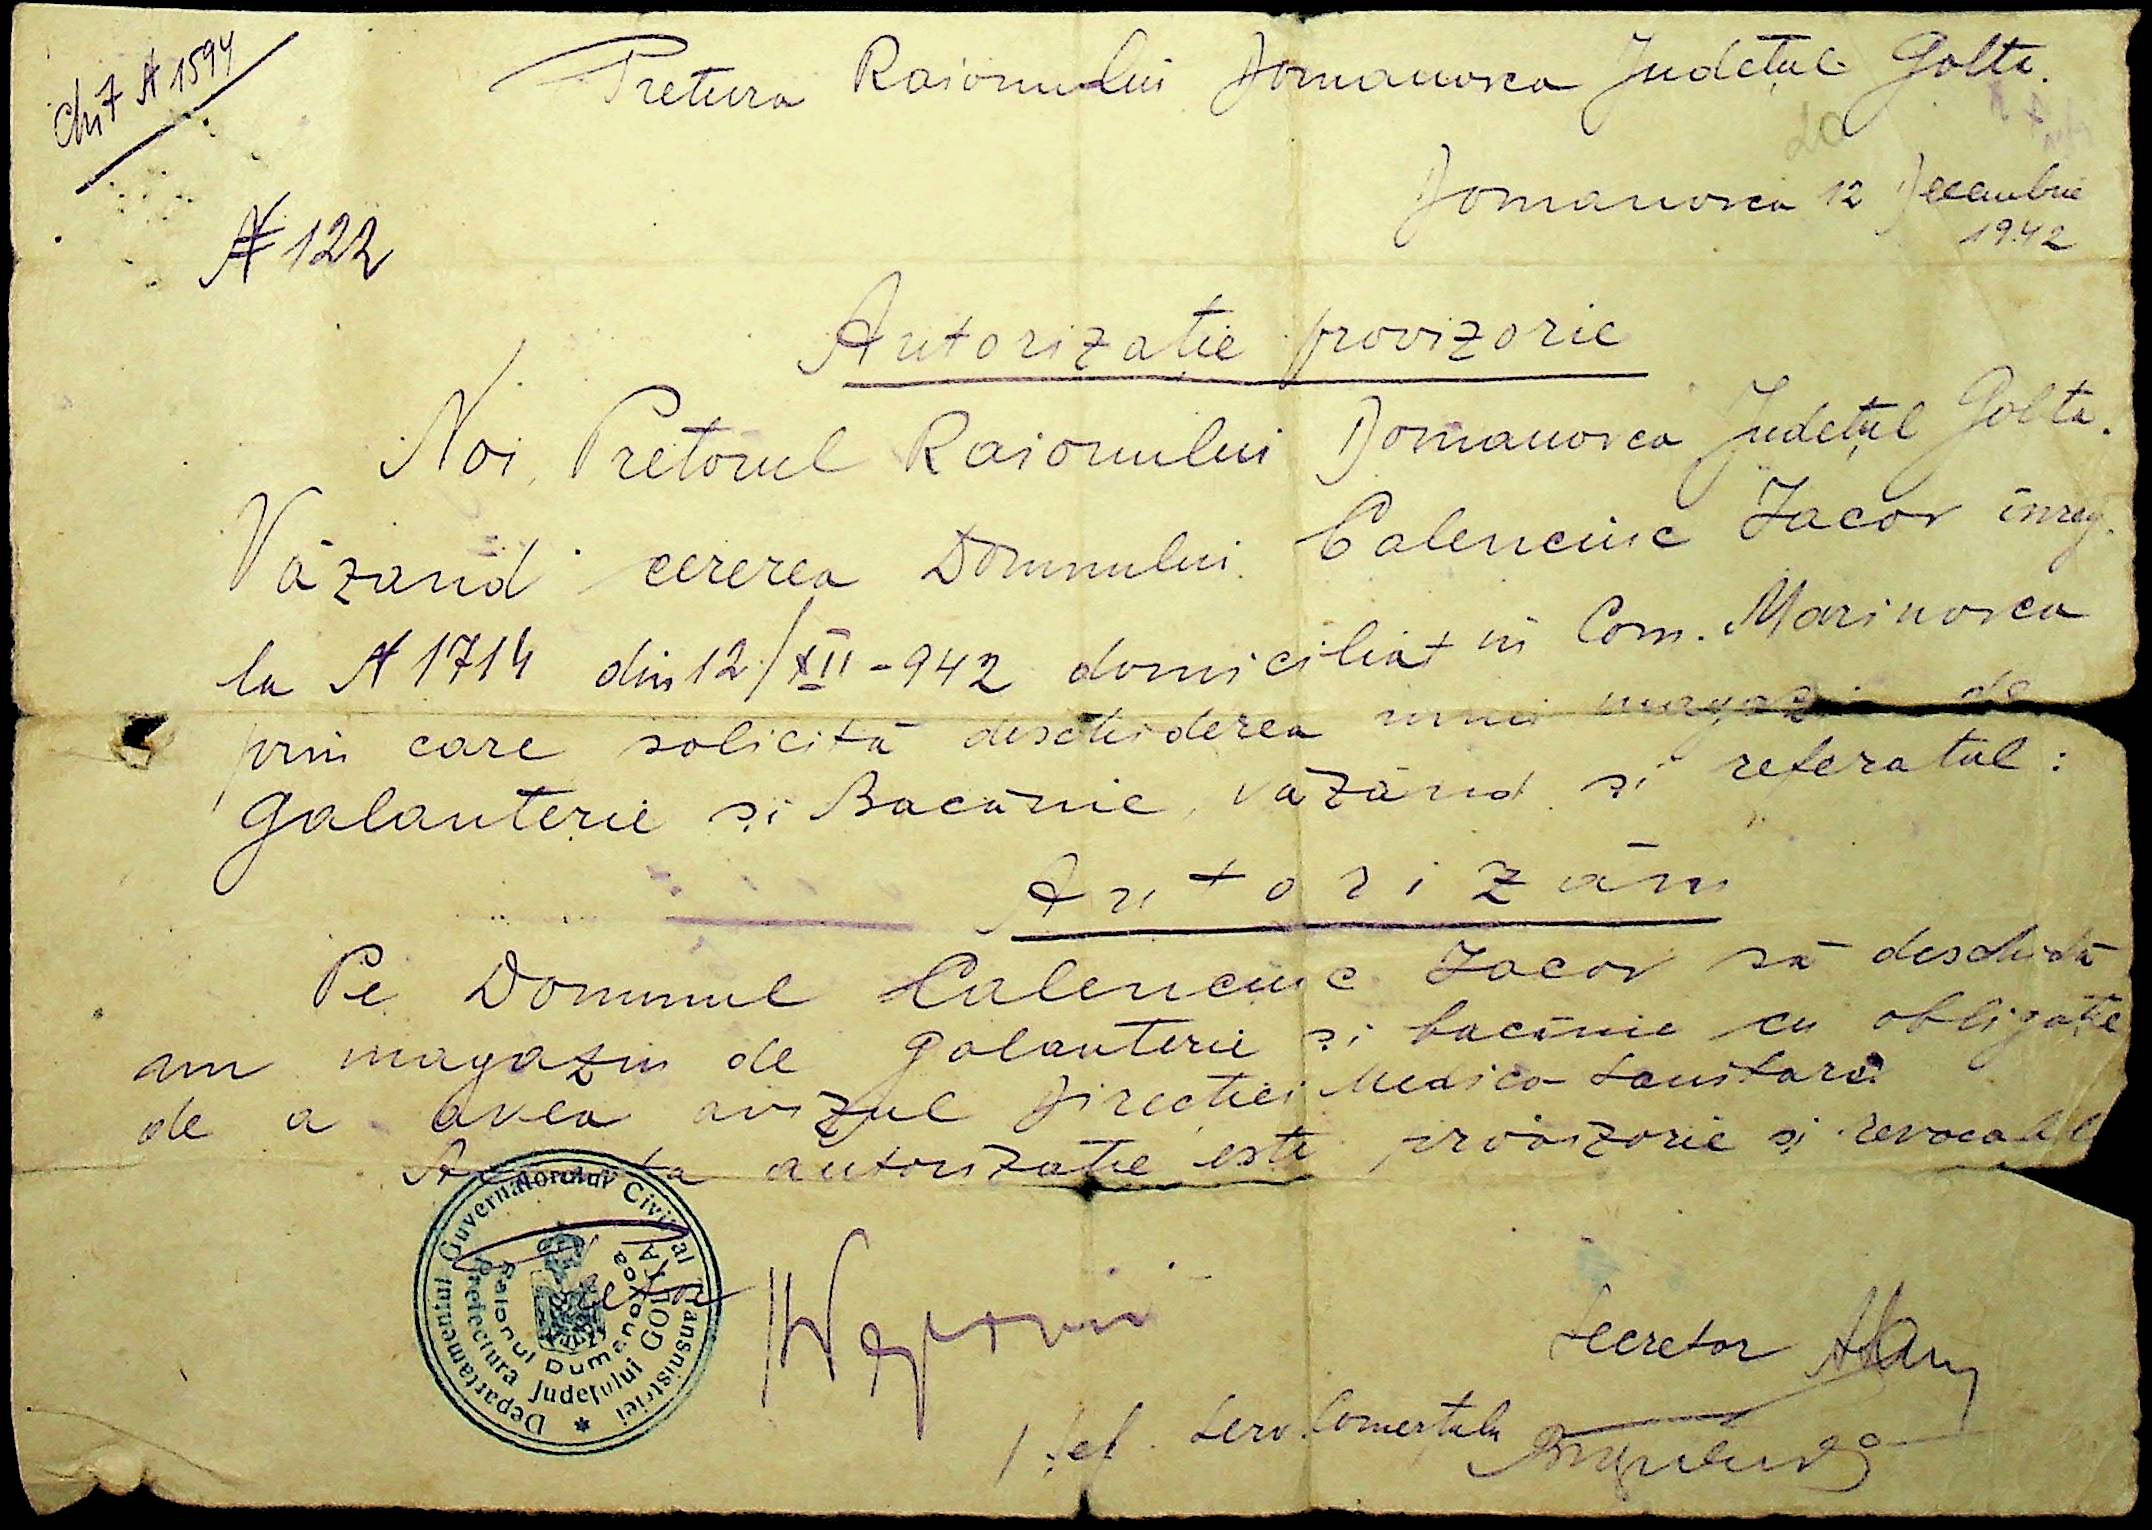 Chit № 1594
Pretura Raionului Domanovca Județul Golta.
Domanovca 12 Decembrie
1942
№ 122
Autorizație provizorie
Noi, Pretorul Raionului Domanovca Județul Golta.
Văzand cererea Domnului Calenciuc Iacov înreg.
la № 1714 din 12/XII-942 domiciliat în Com. Marinovca
prin care solicită deschiderea unui magazin de
Galanterie și Băcănie, văzând și referatul:
Autorizăm
Pe Domnul Calenciuc Iacov să deschidă
un magazin de galanterie și băcănie cu obligație
de a avea avizul Direcției Medico-Sanitară
Aceasta autorizație este provizorie și revocabil
Pretor
Secretar
Șef. Serv. Comerțului
Departamentul Guvernatorului Civil al Transnistriei
Prefectura Județului GOLTA
Raionul Dumanovca